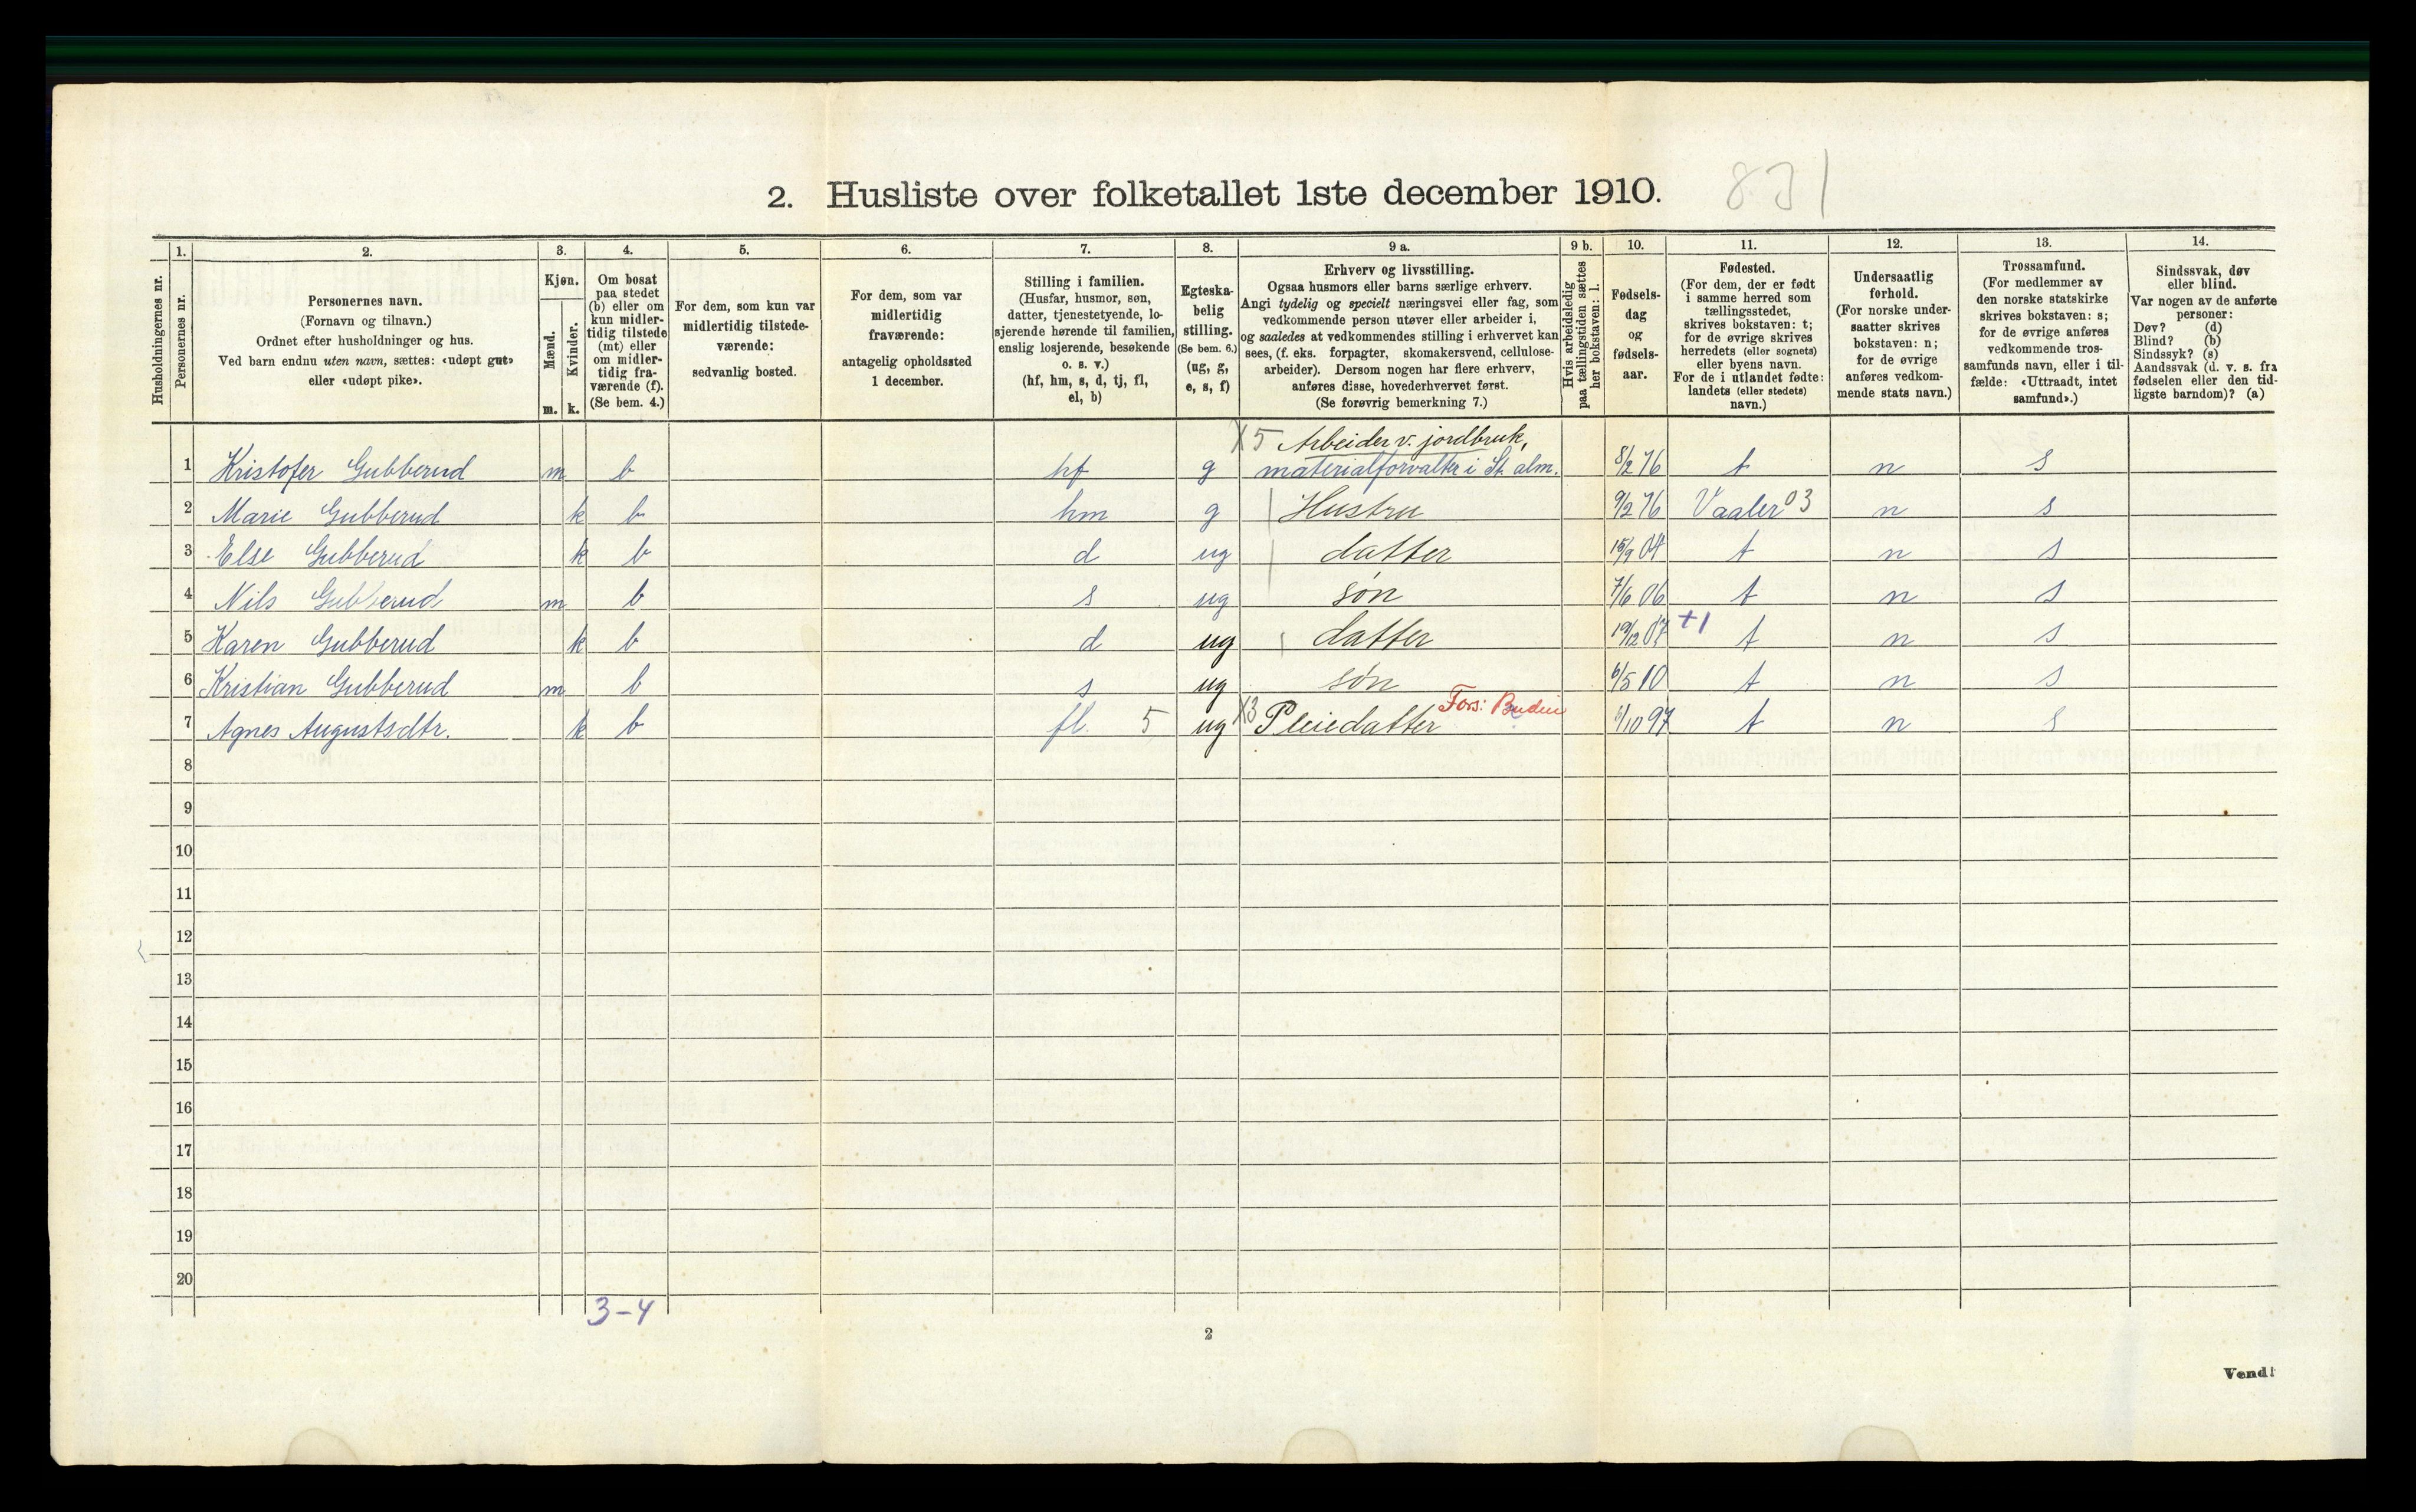 2. Husliste over folketallet 1ste december 1910.
831
Husholdningernes nr.
1.
Personernes nr.
2.
Personernes navn.
(Fornavn og tilnavn.)
Ordnet efter husholdninger og hus.
Ved barn endnu uten navn, sættes: «udøpt gut»
eller «udøpt pike».
3.
Kjøn.
Mænd.
Kvinder.
m. k.
4.
Om bosat
paa stedet
(b) eller om
kun midler-
tidig tilstede
(mt) eller
om midler-
tidig fra-
værende (f).
(Se bem. 4.)
5.
For dem, som kun var
midlertidig tilstede-
værende:
sedvanlig bosted.
6.
For dem, som var
midlertidig
fraværende:
antagelig opholdssted
1 december.
7.
Stilling i familien.
(Husfar, husmor, søn,
datter, tjenestetyende, lo-
sjerende hørende til familien,
enslig losjerende, besøkende
o. s. v.)
(hf, hm, s, d, tj, fl,
el, b)
8.
Egteska-
belig
stilling.
(Se bem. 6.)
(ug, g,
e, s, f)
9 a.
Erhverv og livsstilling.
Ogsaa husmors eller barns særlige erhverv.
Angi tydelig og specielt næringsvei eller fag, som
vedkommende person utøver eller arbeider i,
og saaledes at vedkommendes stilling i erhvervet kan
sees, (f. eks. forpagter, skomakersvend, cellulose-
arbeider). Dersom nogen har flere erhverv,
anføres disse, hovederhvervet først.
(Se forøvrig bemerkning 7.)
9 b.
Hvis arbeidsledig
paa tællingstiden sættes
her bokstaven: l.
10.
Fødsels-
dag
og
fødsels-
aar.
11.
Fødested.
(For dem, der er født
i samme herred som
tællingsstedet,
skrives bokstaven: t;
for de øvrige skrives
herredets (eller sognets)
eller byens navn.
For de i utlandet fødte:
landets (eller stedets)
navn.)
12.
Undersaatlig
forhold.
(For norske under-
saatter skrives
bokstaven: n;
for de øvrige
anføres vedkom-
mende stats navn.)
13.
Trossamfund.
(For medlemmer av
den norske statskirke
skrives bokstaven: s;
for de øvrige anføres
vedkommende tros-
samfunds navn, eller i til-
fælde: «Uttraadt, intet
samfund».)
14.
Sindssvak, døv
eller blind.
Var nogen av de anførte
personer:
Døv? (d)
Blind? (b)
Sindssyk? (s)
Aandssvak (d. v. s. fra
fødselen eller den tid-
ligste barndom)? (a)
X5 Arbeider v. jordbruk,
1 Kristofer Gubberud m b hf g materialforvalter i St. alm. 8/2 76 t n s
2 Marie Gubberud k b hm g Hustru 9/2 76 Vaaler 03 n s
3 Else Gubberud k b d ug datter 15/9 04 t n s
4 Nils Gubberud m b s ug søn 7/6 06 t n s
5 Karen Gubberud k b d ug datter 19/12 07 +1 t n s
6 Kristian Gubberud m b s ug søn 6/5 10 t n s
7 Agnes Augustsdtr. k b fl. 5 ug X3 Pleiedatter Fors: 6/10 97 t n s
8
9
10
11
12
13
14
15
16
17
18
19
20
3-4
2
Vend!